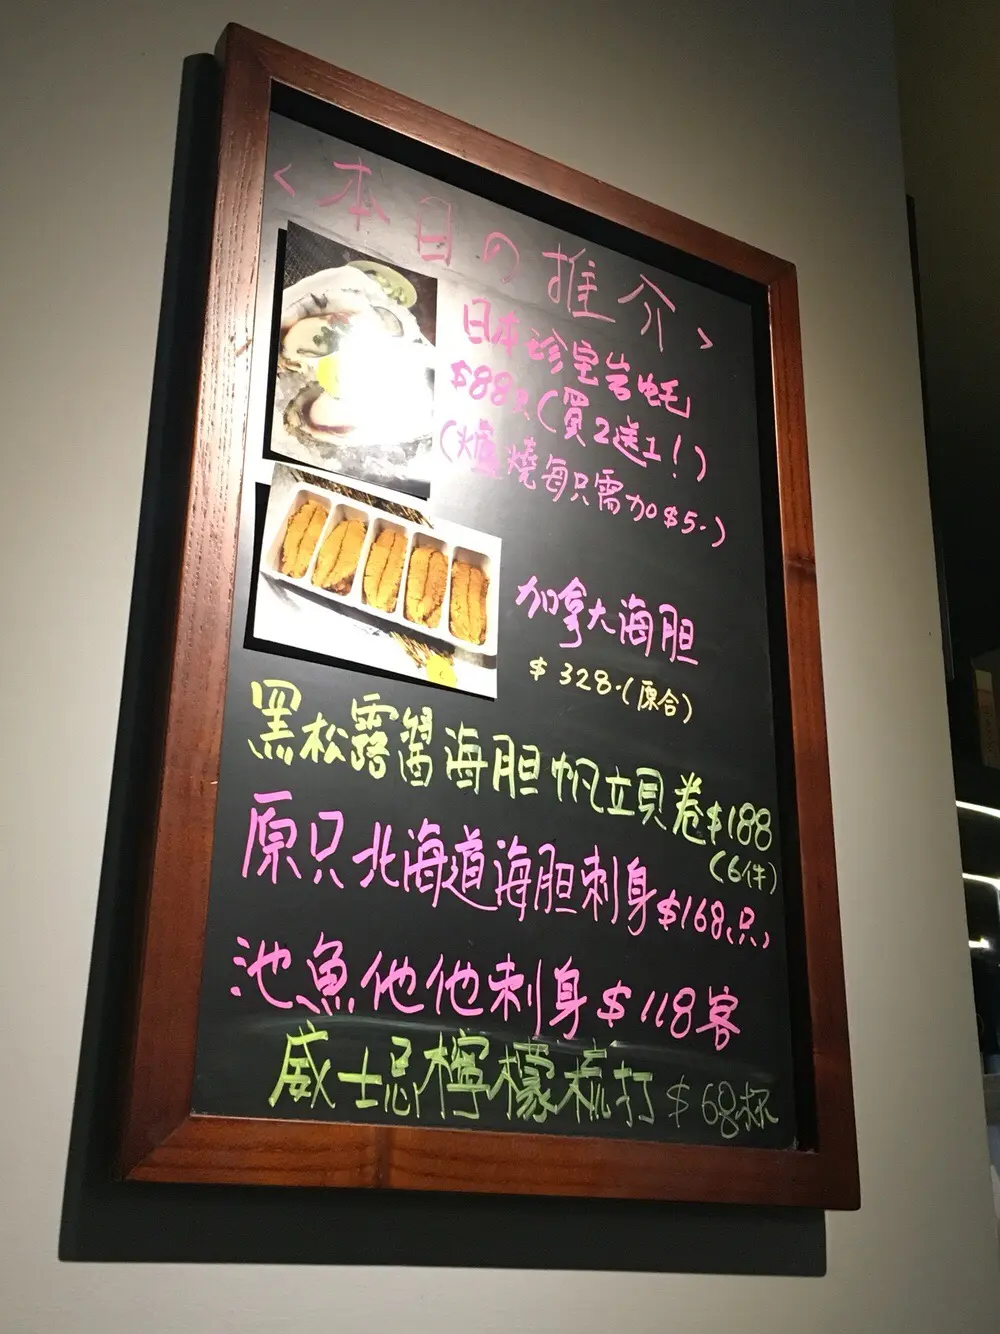 <本日の推介>
日本珍宝岩蚝
$88只(買2送1!)
(爐燒每只需加$5.)
加拿大海胆
$328.(原合)
黑松露醬海胆帆立貝卷$188
(6件)
原只北海道海胆刺身$168、只、
池魚他他刺身$118客
威士忌檸檬梳打$68杯